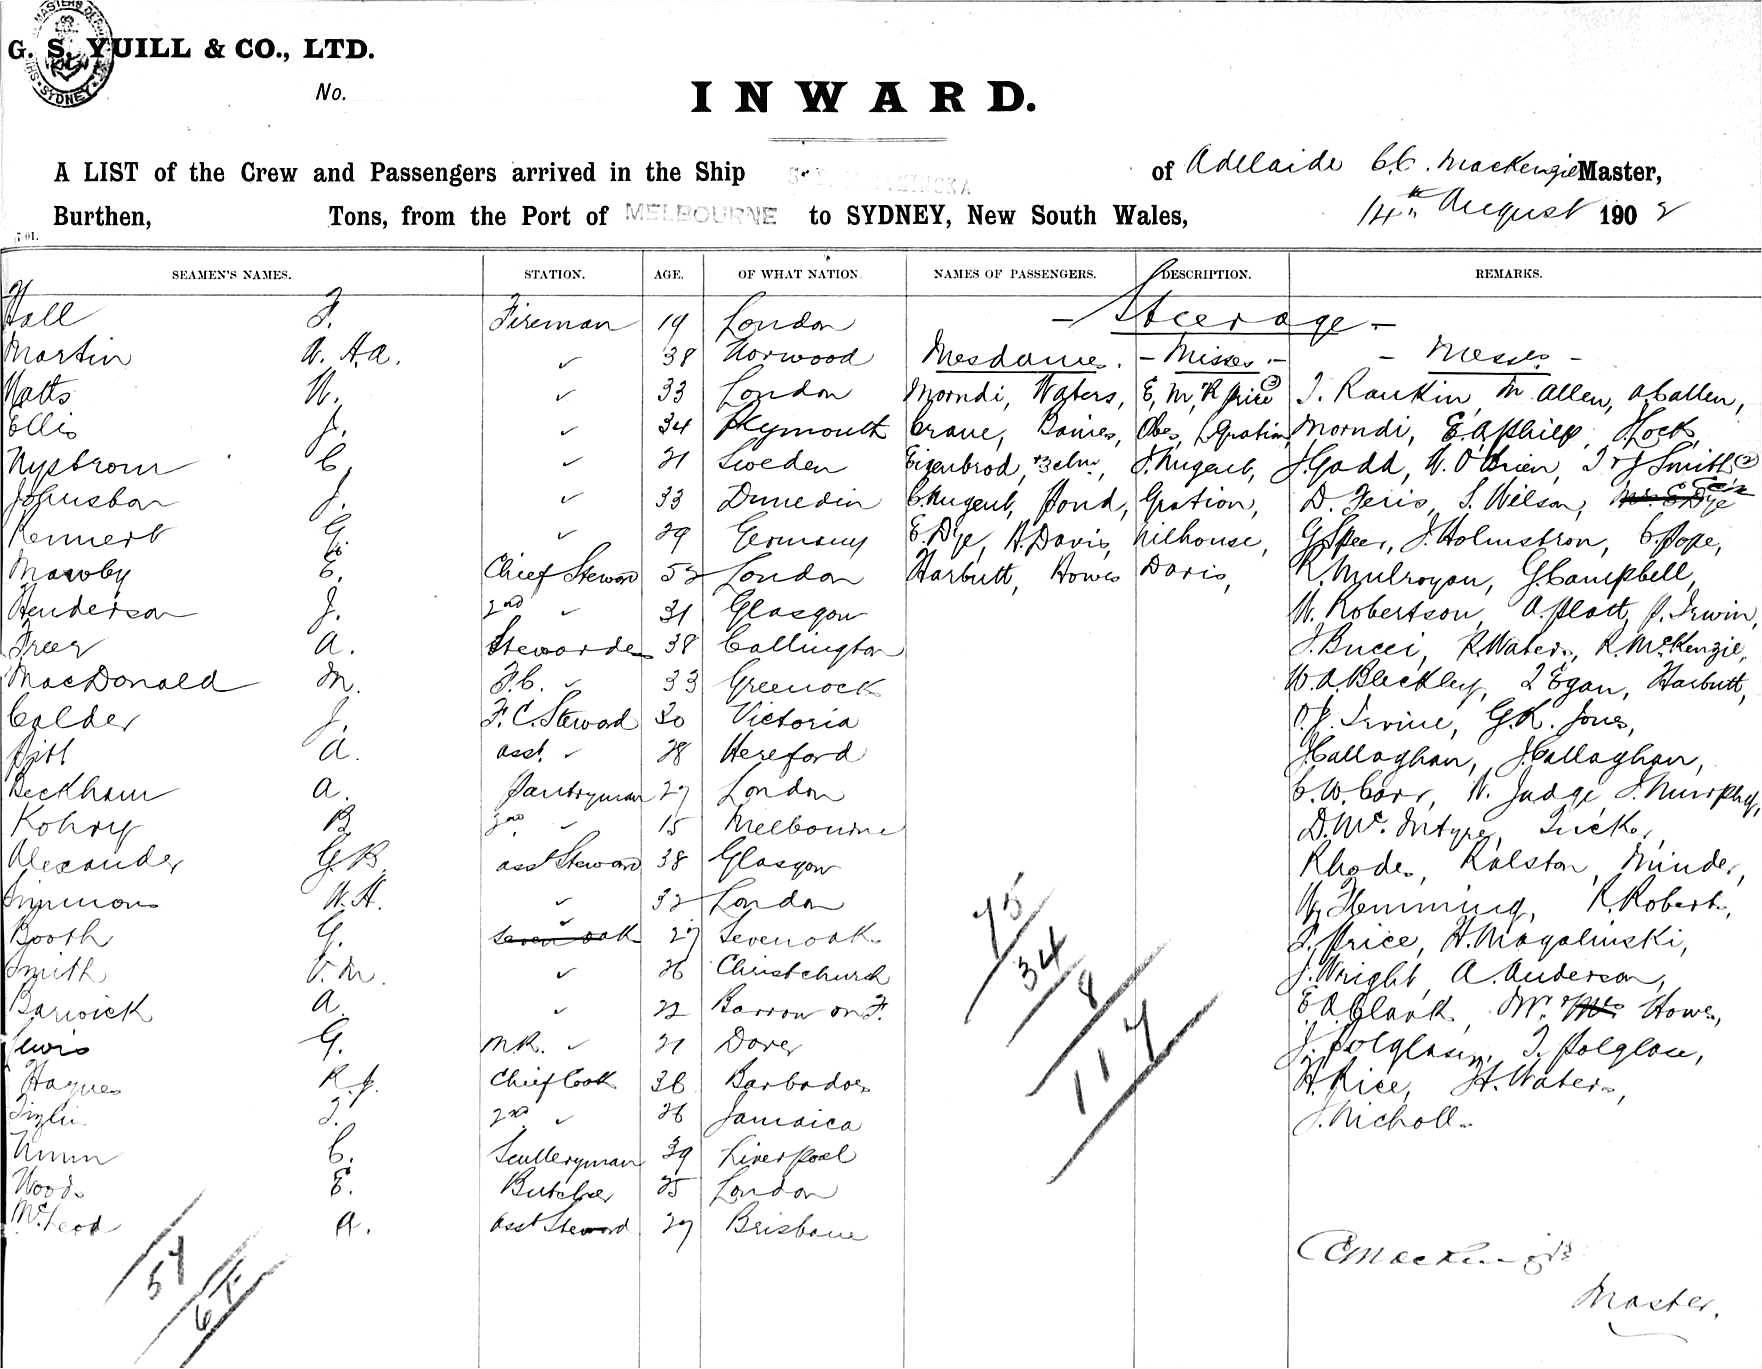 G. S. YUILL & CO., LTD.
SYDNEY
No.
INWARD.
A LIST of the Crew and Passengers arrived in the Ship of Adelaide C.C. MacKenzie Master,
Burthen, Tons, from the Port of MELBOURNE to SYDNEY, New South Wales, 14th August 1902
SEAMEN'S NAMES. STATION. AGE. OF WHAT NATION NAMES OF PASSENGERS. DESCRIPTION. REMARKS.
Hall F. Fireman 19 London - Steerage -
Martin W. H.A. 38 Norwood Mesdames. - Misses - - Messrs -
Watts W. 33 London Morndi, Waters, E, M, R Price (3) J. Rankin, M Allen, A Callen,
Ellis J. 34 Plymouth Crane, Baines, Morndi, E.A Philip, J Lock,
Nystrom C. 21 Sweden Eigenbrod, J. Nugent, J. Gadd, W. O'Brien, T & J Smith (2)
Johnston J. 33 Dunedin C. Nugent, Pond, Gration, D. Feris, S. Wilson,
Kennert G. 29 Germany E. Dye, H. Davis, Milhouse, G Speer, J. Holmstron, C. Pope,
Mawby E. Chief Steward 52 London Harbutt, Howes Davis, R. Mulroyan, G Campbell,
Henderson J. 2nd 31 Glasgow W. Robertson, A. Platt, P. Irwin,
Freer A. Stewardess 38 Callington J. Bucci, R Waters, R. McKenzie,
MacDonald M. F.C. 33 Greenock W.A. Bleckley, Egan, Harbutt,
Calder J. F.C. Steward 30 Victoria Irvine, G.R. Jones,
Pitt A. asst. 28 Hereford J Callaghan, J Callaghan,
Beckham A. Pantryman 27 London C.W. Carr, W. Judge, J. Murphy,
Kohry B. 2nd 15 Melbourne D. Mc. Intyre, Tucker,
Alexander G.B. asst Steward 38 Glasgow Rhodes, Ralston, Minder,
Simmons W.H. 32 London Wm Flemming, R. Roberts,
Booth G. 27 Sevenoaks Price, H. Magalinski,
Smith V. M. 26 Christchurch J. Wright, A. Anderson,
Barwick A. 22 Barrow on F. E.A. Clark, Mr. Howes,
Lewis G. M.R. 21 Dover J. Polglase, T. Polglase,
Haynes R.J. Chief Cook 36 Barbadoes H. Rice, H. Waters,
T. 2nd 26 Jamaica J. Nicholls
Nunn C. Sculleryman 39 Liverpool
Woods E. Butcher 25 London
McLeod A. asst Steward 27 Brisbane
75
34
8
117
57
CC MacKenzie
Master.